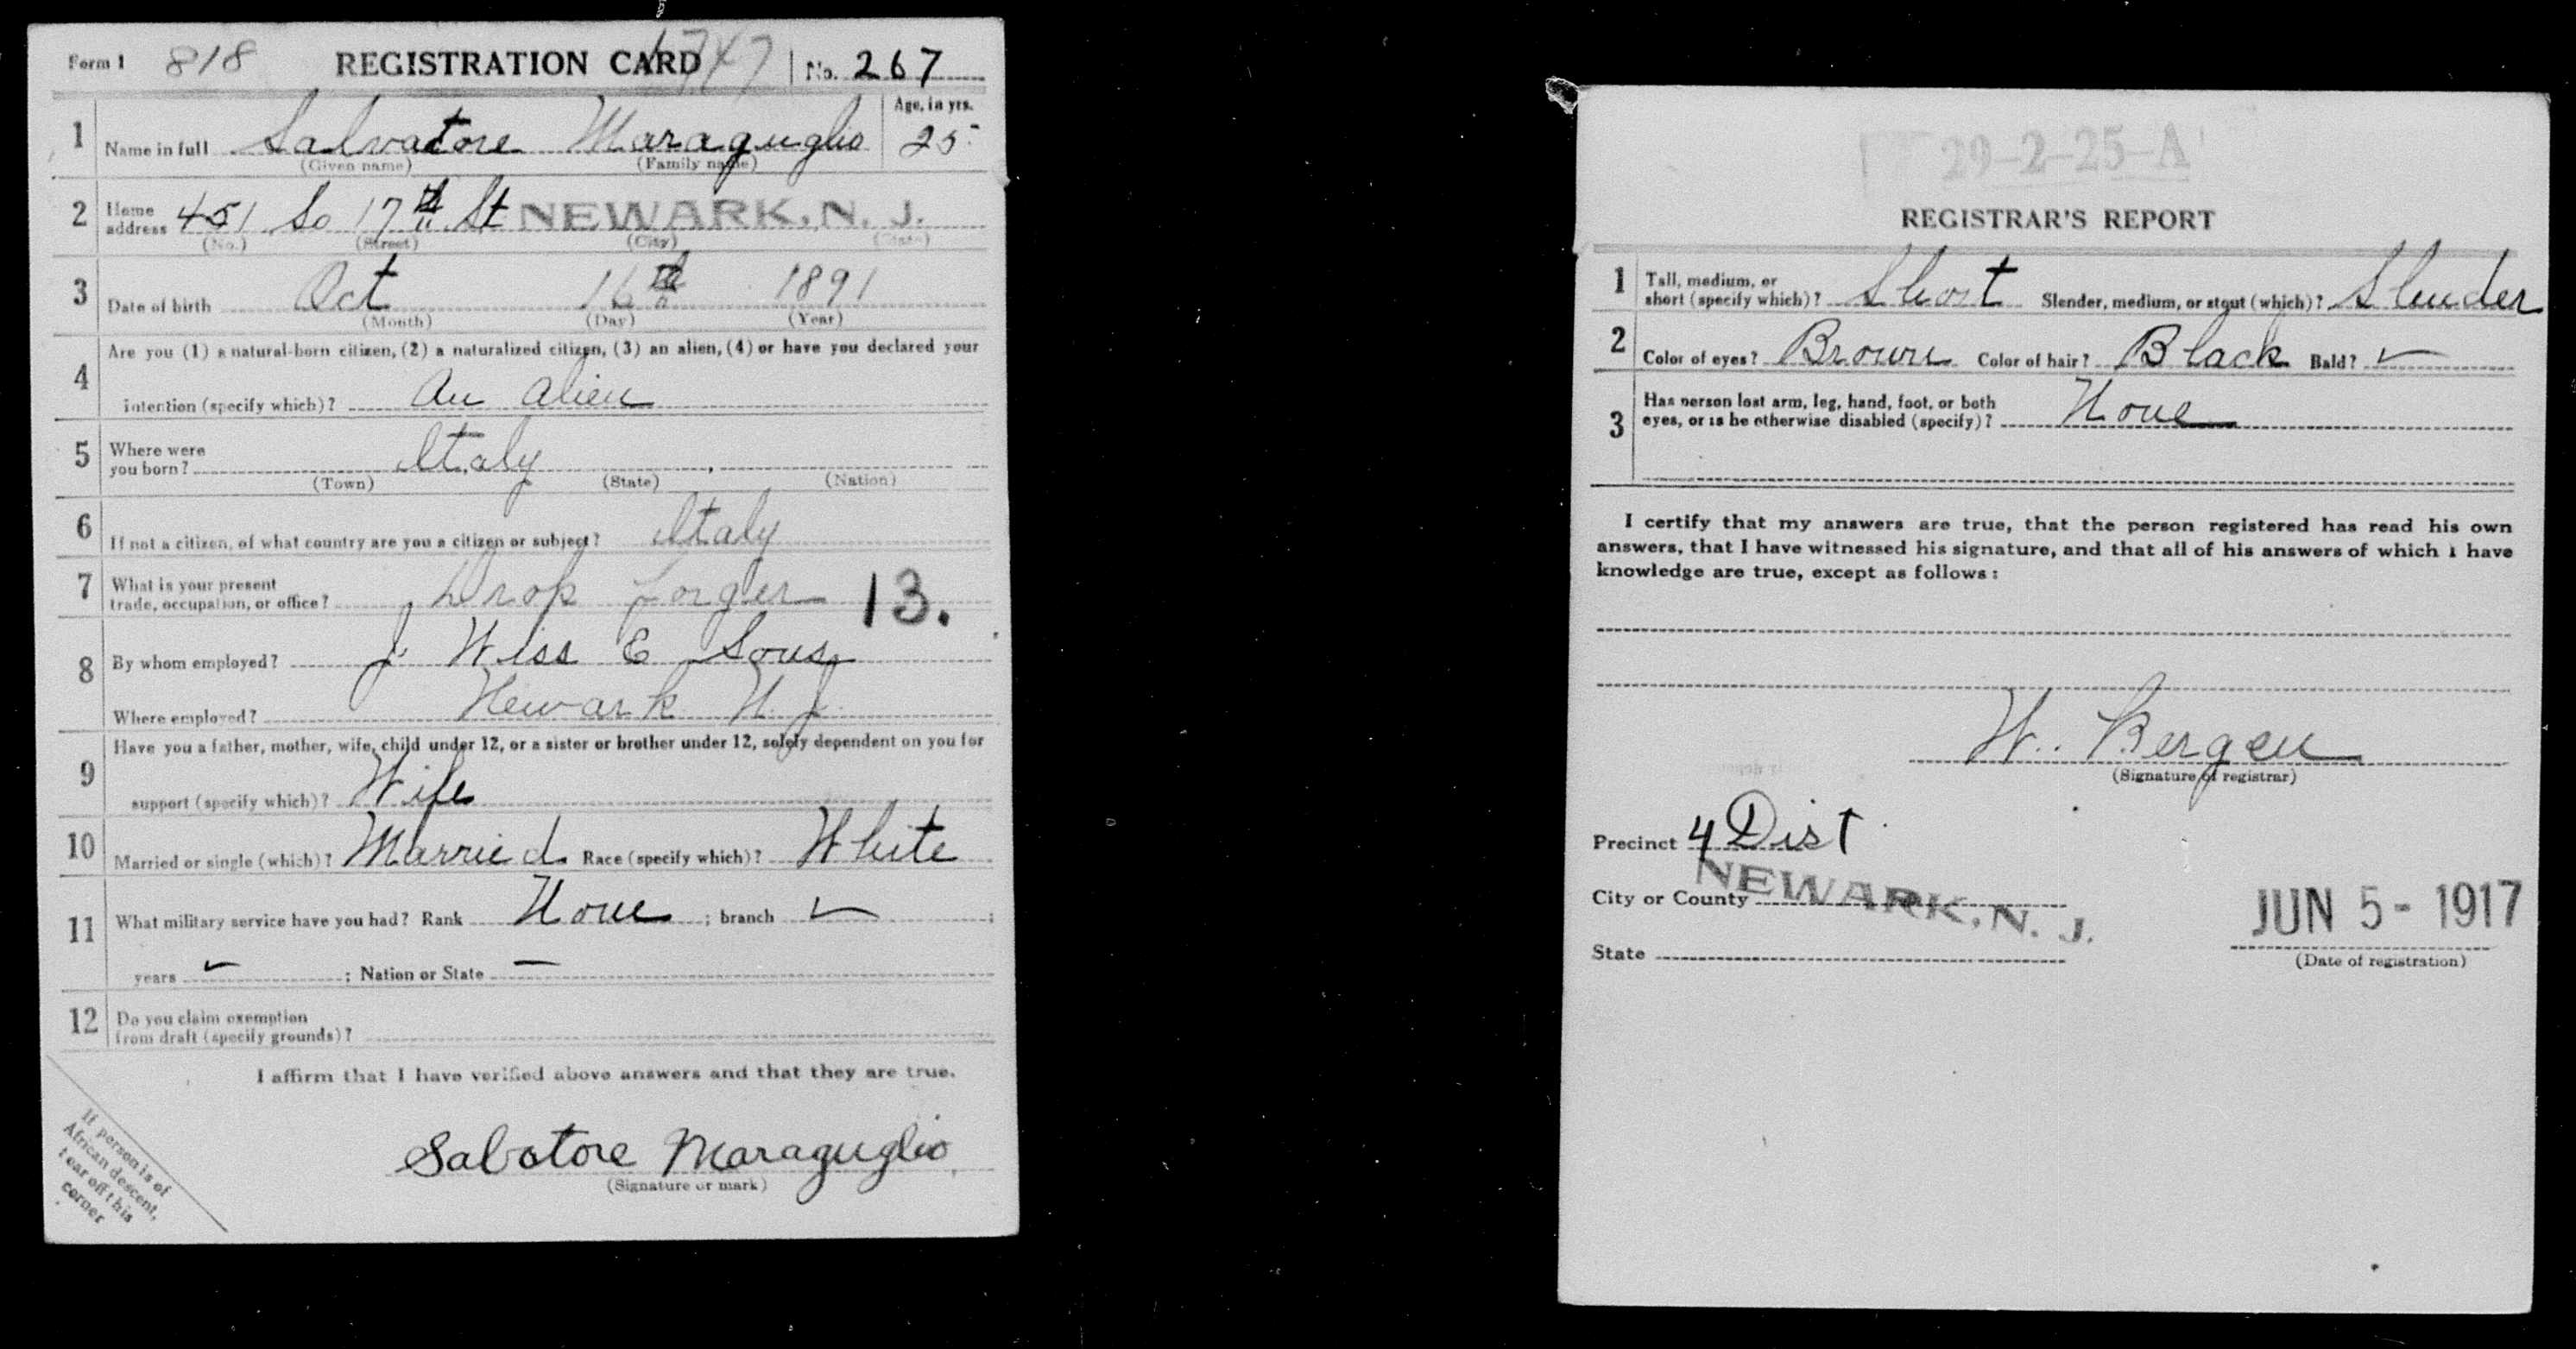 Form 1 818 REGISTRATION CARD 1747 No. 267
1 Name in full Salvatore Maraguglio Age, in yrs. 25
(Given name) (Family name)
2 Home address 451 So 17th St NEWARK, N. J.
(No.) (Street) (City) (State)
3 Date of birth Oct 16th 1891
(Month) (Day) (Year)
4 Are you (1) a natural-born citizen, (2) a naturalized citizen, (3) an alien, (4) or have you declared your
intention (specify which)? An Alien
5 Where were you born? Italy
(Town) (State) (Nation)
6 If not a citizen, of what country are you a citizen or subject? Italy
7 What is your present trade, occupation, or office? Drop Forger 13.
8 By whom employed? J Wiss & Sons
Where employed? Newark N. J.
9 Have you a father, mother, wife, child under 12, or a sister or brother under 12, solely dependent on you for
support (specify which)? Wife
10 Married or single (which)? Married Race (specify which)? White
11 What military service have you had? Rank None ; branch ;
years ; Nation or State —
12 Do you claim exemption
from draft (specify grounds)?
I affirm that I have verified above answers and that they are true.
Salvatore Maraguglio
(Signature or mark)
If person is of
African descent,
tear off this
corner
29-2-25-A
REGISTRAR'S REPORT
1 Tall, medium, or
short (specify which)? Short Slender, medium, or stout (which)? Slender
2 Color of eyes? Brown Color of hair? Black Bald?
3 Has person lost arm, leg, hand, foot, or both
eyes, or is he otherwise disabled (specify)? None
I certify that my answers are true, that the person registered has read his own
answers, that I have witnessed his signature, and that all of his answers of which I have
knowledge are true, except as follows:
W. Bergen
(Signature of registrar)
Precinct 4 Dist
City or County NEWARK, N. J.
State
JUN 5 - 1917
(Date of registration)